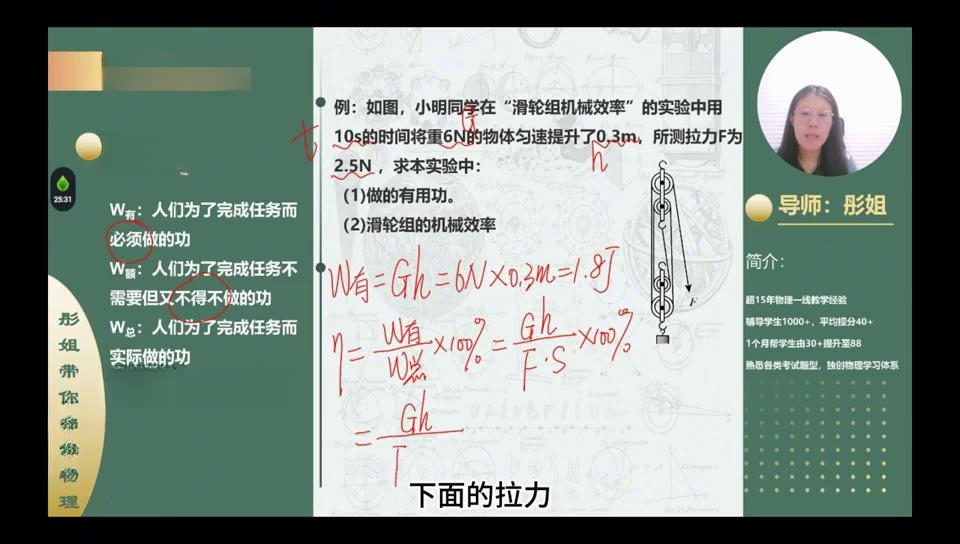 例：如图，小明同学在“滑轮组机械效率”的实验中用
10s的时间将重6N的物体匀速提升了0.3m，所测拉力F为
2.5N，求本实验中：
(1)做的有用功。
(2)滑轮组的机械效率
t
G
h
W有=Gh=6N×0.3m=1.8J
η=W有/W总×100%=Gh/F·S×100%
=Gh/
F
25:31
W有：人们为了完成任务而
必须做的功
W额：人们为了完成任务不
需要但又不得不做的功
W总：人们为了完成任务而
实际做的功
彤姐带你
物理
导师：彤姐
简介：
超15年物理一线教学经验
辅导学生1000+，平均提分40+
1个月帮学生由30+提升至88
熟悉各类考试题型，独创物理学习体系
下面的拉力